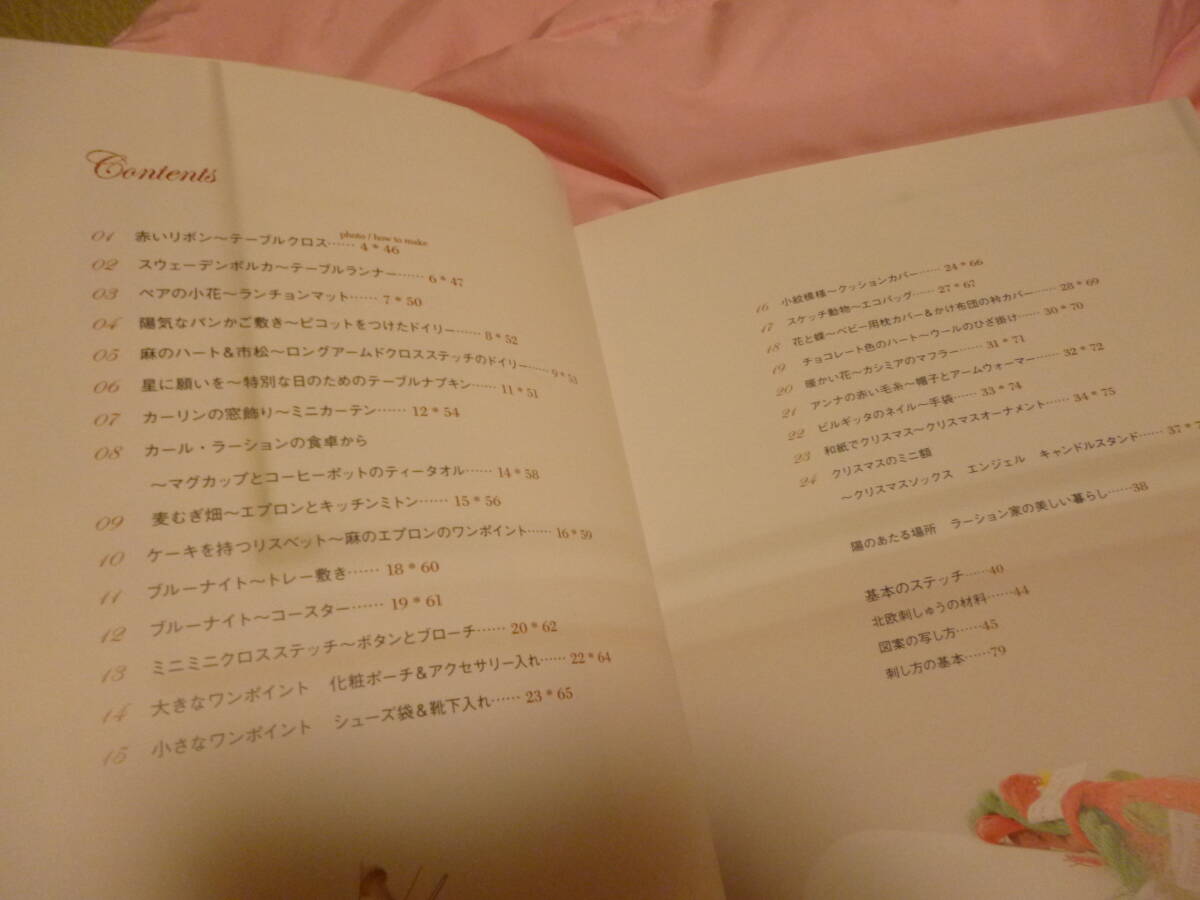 Contents
photo / how to make
01 赤いリボン～テーブルクロス…… 4 * 46
02 スウェーデンポルカ～テーブルランナー…… 6 * 47
03 ペアの小花～ランチョンマット…… 7 * 50
04 陽気なパンかご敷き～ピコットをつけたドイリー…… 8 * 52
05 麻のハート＆市松～ロングアームドクロスステッチのドイリー…… 9 * 53
06 星に願いを～特別な日のためのテーブルナプキン…… 11 * 51
07 カーリンの窓飾り～ミニカーテン…… 12 * 54
08 カール・ラーションの食卓から
～マグカップとコーヒーポットのティータオル…… 14 * 58
09 麦むぎ畑～エプロンとキッチンミトン…… 15 * 56
10 ケーキを持つリスベット～麻のエプロンのワンポイント…… 16 * 59
11 ブルーナイト～トレー敷き…… 18 * 60
12 ブルーナイト～コースター…… 19 * 61
13 ミニミニクロスステッチ～ボタンとブローチ…… 20 * 62
14 大きなワンポイント　化粧ポーチ＆アクセサリー入れ…… 22 * 64
15 小さなワンポイント　シューズ袋＆靴下入れ…… 23 * 65
16 小紋模様～クッションカバー…… 24 * 66
17 スケッチ動物～エコバッグ…… 27 * 67
18 花と蝶～ベビー用枕カバー＆かけ布団の衿カバー…… 28 * 69
19 チョコレート色のハート～ウールのひざ掛け…… 30 * 70
20 暖かい花～カシミアのマフラー…… 31 * 71
21 アンナの赤い毛糸～帽子とアームウォーマー…… 32 * 72
22 ビルギッタのネイル～手袋…… 33 * 74
23 和紙でクリスマス～クリスマスオーナメント…… 34 * 75
24 クリスマスのミニ額
～クリスマスソックス　エンジェル　キャンドルスタンド…… 37 *
陽のあたる場所　ラーション家の美しい暮らし……38
基本のステッチ……40
北欧刺しゅうの材料……44
図案の写し方……45
刺し方の基本……79